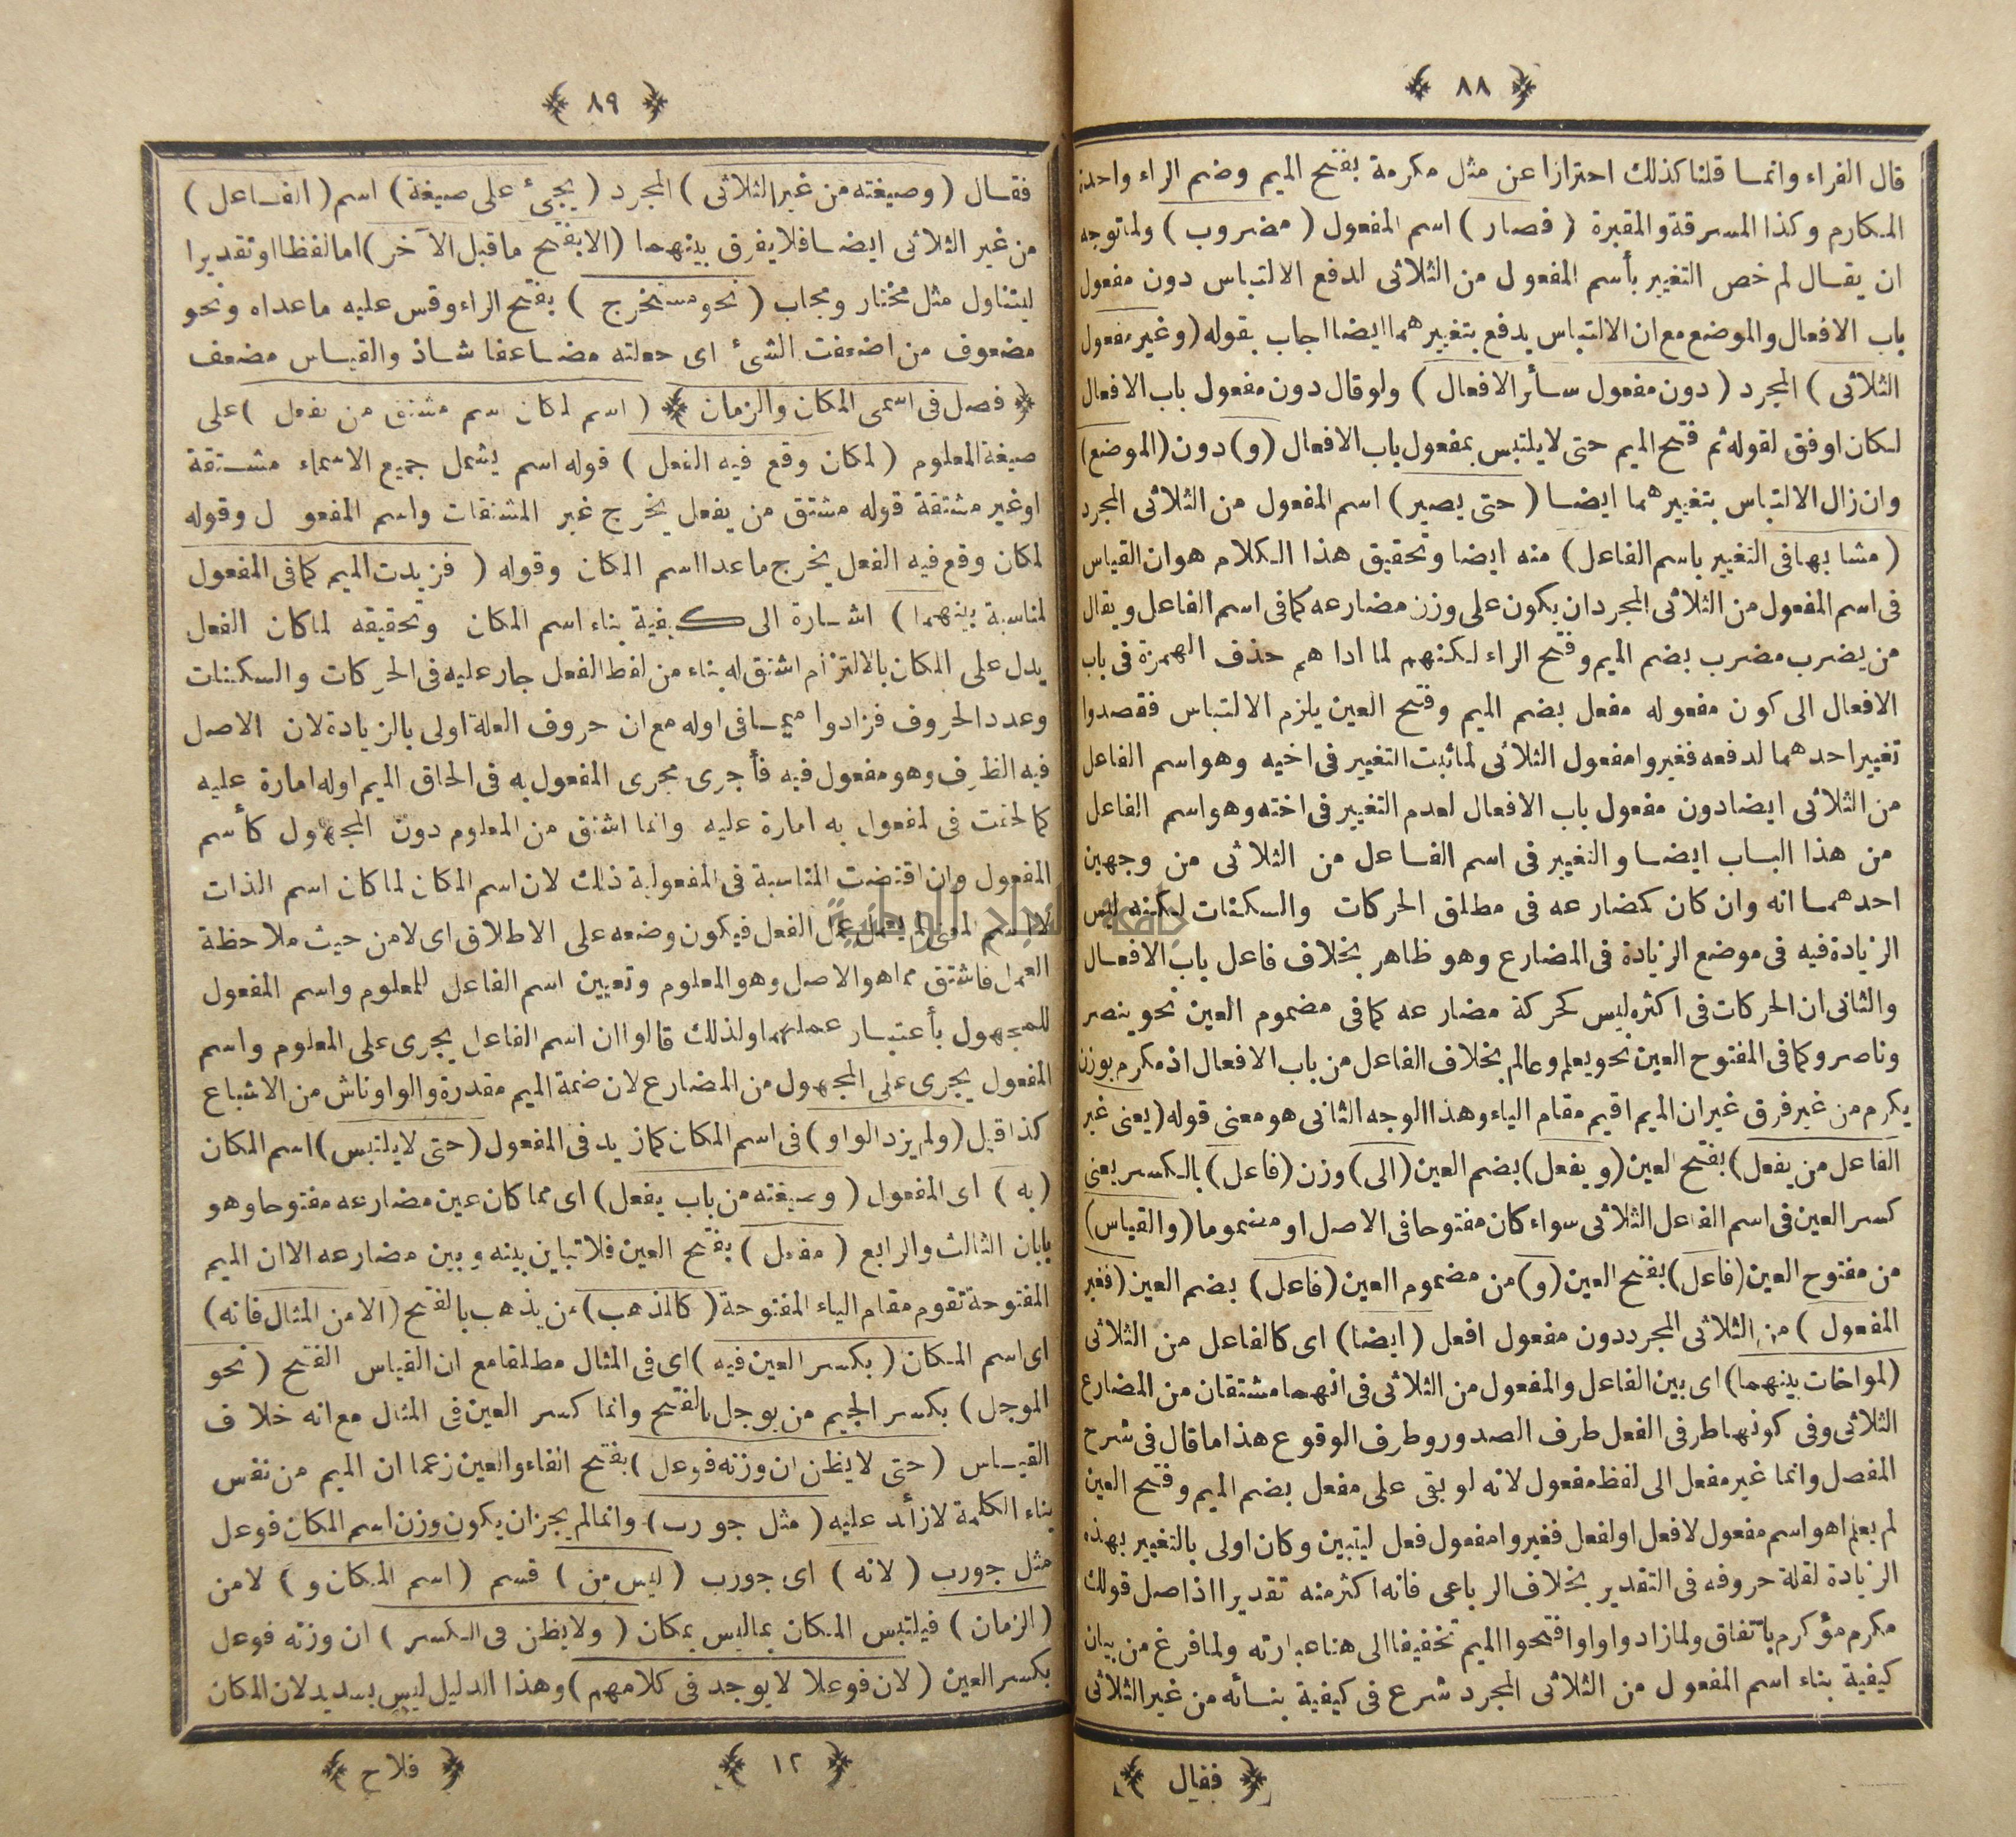 ﴿ ٨٨ ﴾
قال الفراء وانمسا قلنا كذلك احترازا عن مثل مكرمة بفتح الميم وضم الراء واحدة
المكارم وكذا المسرقة والمقبرة ( فصار ) اسم المفعول ( مضروب ) ولما توجه
ان يقسال لم خص التغيير بأسم المفعول من الثلاثى لدفع الالتباس دون مفعول
باب الافعال والموضع مع ان الالتباس يدفع بتغييرهما ايضا اجاب بقوله ( وغير مفعول
الثلاثى ) المجرد ( دون مفعول سأر الافعال ) ولو قال دون مفعول باب الافعال
لكان اوفق لقوله ثم فتح الميم حتى لا يلتبس بمفعول باب الافعال ( و ) دون ( الموضع )
وان زال الالتباس بتغييرهما ايضا ( حتى يصير ) اسم المفعول من الثلاثى المجرد
( مشابها فى التغيير باسم الفاعل ) منه ايضا وتحقيق هذا الكلام هو ان القياس
فى اسم المفعول من الثلاثى المجرد ان يكون على وزن مضارعه كما فى اسم الفاعل ويقال
من يضرب مضرب بضم الميم وفتح الراء لكنهم لما اداهم حذف الهمزة فى باب
الافعال الى كون مفعوله مفعل بضم الميم وفتح العين يلزم الالتباس فقصدوا
تغيير احدهما لدفعه فغيروا مفعول الثلاثى لما ثبت التغيير فى اخيه وهو اسم الفاعل
من الثلاثى ايضا دون مفعول باب الافعال لعدم التغيير فى اخته وهو اسم الفاعل
من هذا الباب ايضا والتغيير فى اسم الفاعل من الثلاثى من وجهين
احدهمسا انه وان كان كمضارعه فى مطلق الحركات والسكنات لكنه ليس
الزيادة فيه فى موضع الزيادة فى المضارع وهو ظاهر بخلاف فاعل باب الافعال
والثانى ان الحركات فى اكثره ليس كحركة مضارعه كما فى مضموم العين نحو ينصر
وناصر وكما فى المفتوح العين نحو يعلم وعالم بخلاف الفاعل من باب الافعال اذ مكرم بوزن
يكرم من غير فرق غير ان الميم اقيم مقام الياء وهذا الوجه الثانى هو معنى قوله ( يعنى غير
الفاعل من يفعل ) بفتح العين ( ويفعل ) بضم العين ( الى ) وزن ( فاعل ) بالكسر يعنى
كسر العين فى اسم الفاعل الثلاثى سواء كان مفتوحا فى الاصل او مضموما ( والقياس )
من مفتوح العين ( فاعل ) بفتح العين ( و ) من مضموم العين ( فاعل ) بضم العين ( فغير
المفعول ) من الثلاثى المجرد دون مفعول افعل ( ايضا ) اى كالفاعل من الثلاثى
( لمواخات بينهما ) اى بين الفاعل والمفعول من الثلاثى فى انهما مشتقان من المضارع
الثلاثى وفى كونهما طرفى الفعل طرف الصدور وطرف الوقوع هذا ما قال فى شرح
المفصل وانما غير مفعل الى لفظ مفعول لانه لو بقى على مفعل بضم الميم وفتح العين
لم يعلم اهو اسم مفعول لافعل او لفعل فغيروا مفعول فعل ليتبين وكان اولى بالتغيير بهذه
الزيادة لقلة حروفه فى التقدير بخلاف الرباعى فانه اكثر منه تقديرا اذ اصل قولك
مكرم مؤكرم باتفاق ولما زادوا واوا فتحوا الميم تخفيفا الى هنا عبارته ولما فرغ من بيان
كيفية بناء اسم المفعول من الثلاثى المجرد شرع فى كيفية بنائه من غير الثلاثى
﴿ فقال ﴾
﴿ ٨٩ ﴾
فقسال ( وصيغته من غير الثلاثى ) المجرد ( يجئ على صيغة ) اسم ( الفساعل )
من غير الثلاثى ايضا فلا يفرق بينهما ( الا بفتح ما قبل الآخر ) اما لفظا او تقديرا
ليتناول مثل مختار ومجاب ( نحو مستخرج ) بفتح الراء وقس عليه ما عداه ونحو
مضعوف من اضعفت الشئ اى جعلته مضاعفا شاذ والقياس مضعف
﴿ فصل فى اسمى المكان والزمان ﴾ ( اسم المكان اسم مشتق من يفعل ) على
صيغة المعلوم ( لمكان وقع فيه الفعل ) قوله اسم يشمل جميع الاسماء مشتقة
او غير مشتقة قوله مشتق من يفعل يخرج غير المشتقات واسم المفعول وقوله
لمكان وقع فيه الفعل يخرج ما عدا اسم المكان وقوله ( فزيدت الميم كما فى المفعول
لمناسبة بينهما ) اشارة الى كيفية بناء اسم المكان وتحقيقه لما كان الفعل
يدل على المكان بالالتزام اشتق له بناء من لفظ الفعل جار عليه فى الحركات والسكنات
وعدد الحروف فزادوا ميما فى اوله مع ان حروف العلة اولى بالزيادة لان الاصل
فيه الظرف وهو مفعول فيه فأجرى مجرى المفعول به فى الحاق الميم اوله امارة عليه
كما لحقت فى المفعول به امارة عليه وانما اشتق من المعلوم دون المجهول كأسم
المفعول وان اقتضت المناسبة فى المفعولية ذلك لان اسم المكان لما كان اسم الذات
لا اسم المعنى لم يعمل عمل الفعل فيكون وضعه على الاطلاق اى لا من حيث ملاحظة
العمل فاشتق مما هو الاصل وهو المعلوم وتعيين اسم الفاعل للمعلوم واسم المفعول
للمجهول بأعتبار عملهما ولذلك قالوا ان اسم الفاعل يجرى على المعلوم واسم
المفعول يجرى على المجهول من المضارع لان ضمة الميم مقدرة والواو ناش من الاشباع
كذا قيل ( ولم يزد الواو ) فى اسم المكان كما زيد فى المفعول ( حتى لا يلتبس ) اسم المكان
( به ) اى المفعول ( وصيغته من باب يفعل ) اى مما كان عين مضارعه مفتوحا وهو
بابان الثالث والرابع ( مفعل ) بفتح العين فلا تباين بينه وبين مضارعه الا ان الميم
المفتوحة تقوم مقام الياء المفتوحة ( كالمذهب ) من يذهب بالفتح ( الا من المثال فانه )
اى اسم المكان ( بكسر العين فيه ) اى فى المثال مطلقا مع ان القياس الفتح ( نحو
الموجل ) بكسر الجيم من يوجل بالفتح وانما كسر العين فى المثال مع انه خلاف
القياس ( حتى لا يظن ان وزنه فوعل ) بفتح الفاء والعين زعما ان الميم من نفس
بناء الكلمة لا زأد عليه ( مثل جورب ) وانما لم يجز ان يكون وزن اسم المكان فوعل
مثل جورب ( لانه ) اى جورب ( ليس من ) قسم ( اسم المكان و ) لا من
( الزمان ) فيلتبس المكان بما ليس بمكان ( ولا يظن فى الكسر ) ان وزنه فوعل
بكسر العين ( لان فوعلا لا يوجد فى كلامهم ) وهذا الدليل ليس بسديد لان المكان
﴿ ١٢ ﴾
﴿ فلاح ﴾
جامعة النجاح الوطنية